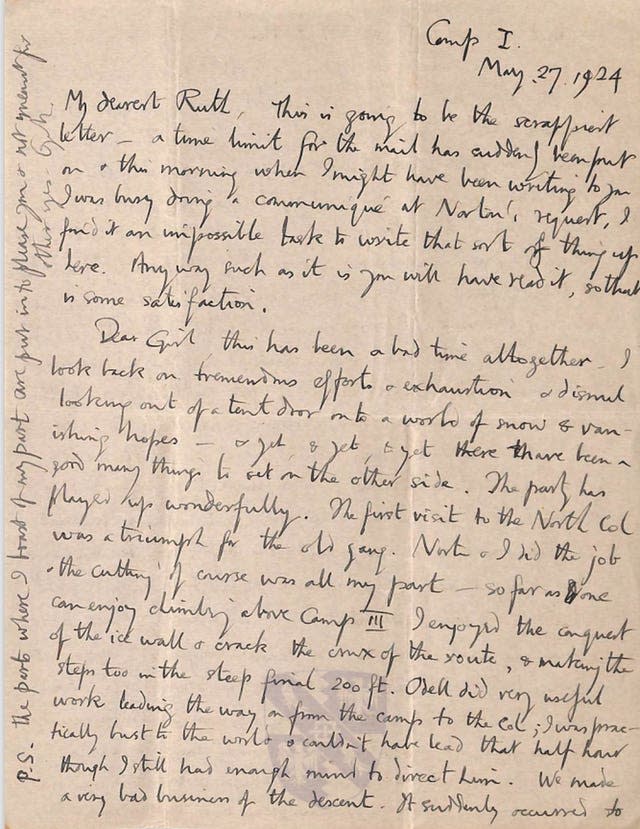 Camp I.
May. 27. 1924
My dearest Ruth, This is going to be the scrappiest
letter – a time limit for the mail has suddenly been put
on & this morning when I might have been writing to you
I was busy doing a communiqué at Norton's request, I
find it an impossible task to write that sort of thing up
here. Anyway such as it is you will have read it, so that
is some satisfaction.
Dear Girl, this has been a bad time altogether – I
look back on tremendous efforts & exhaustion & dismal
looking out of a tent door on to a world of snow & van-
ishing hopes – & yet, & yet, & yet there have been a
good many things to set on the other side. The party has
played up wonderfully. The first visit to the North Col
was a triumph for the old gang. Norton & I did the job
& the cutting of course was all my part – so far as one
can enjoy climbing above Camp III I enjoyed the conquest
of the ice wall & crack the crux of the route, & making the
steps too in the steep final 200 ft. Odell did very useful
work leading the way on from the camp to the Col; I was prac-
tically bust to the world & couldn't have lead that half hour
though I still had enough mind to direct him. We made
a very bad business of the descent. It suddenly occurred to
P.S. the parts where I boast of my part are put in to please you & not meant for
other eyes. G.M.